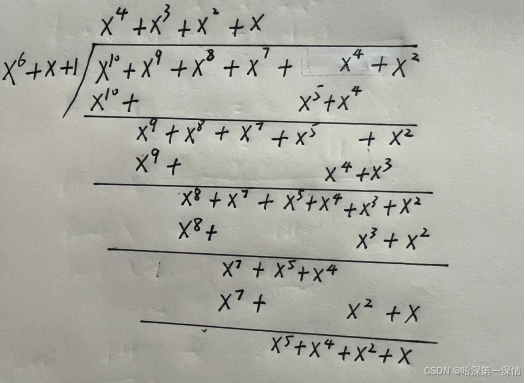 x⁴ + x³ + x² + x
x⁶ + x + 1 x¹⁰ + x⁹ + x⁸ + x⁷ + x⁴ + x²
x¹⁰ + x⁵ + x⁴
x⁹ + x⁸ + x⁷ + x⁵ + x²
x⁹ + x⁴ + x³
x⁸ + x⁷ + x⁵ + x⁴ + x³ + x²
x⁸ + x³ + x²
x⁷ + x⁵ + x⁴
x⁷ + x² + x
x⁵ + x⁴ + x² + x
CSDN @哈深第一深情